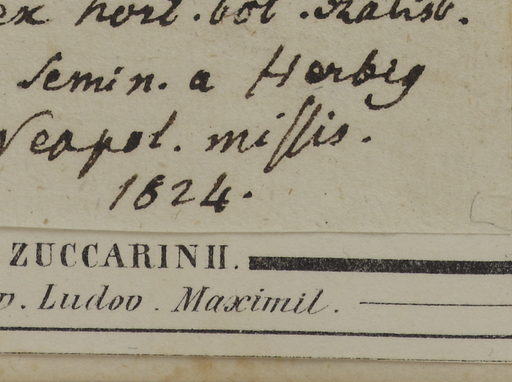 ex hort. bot. Ratisb.
Semin. a Herbig
Neapol. missis.
1824.
ZUCCARINII.
. Ludov. Maximil.